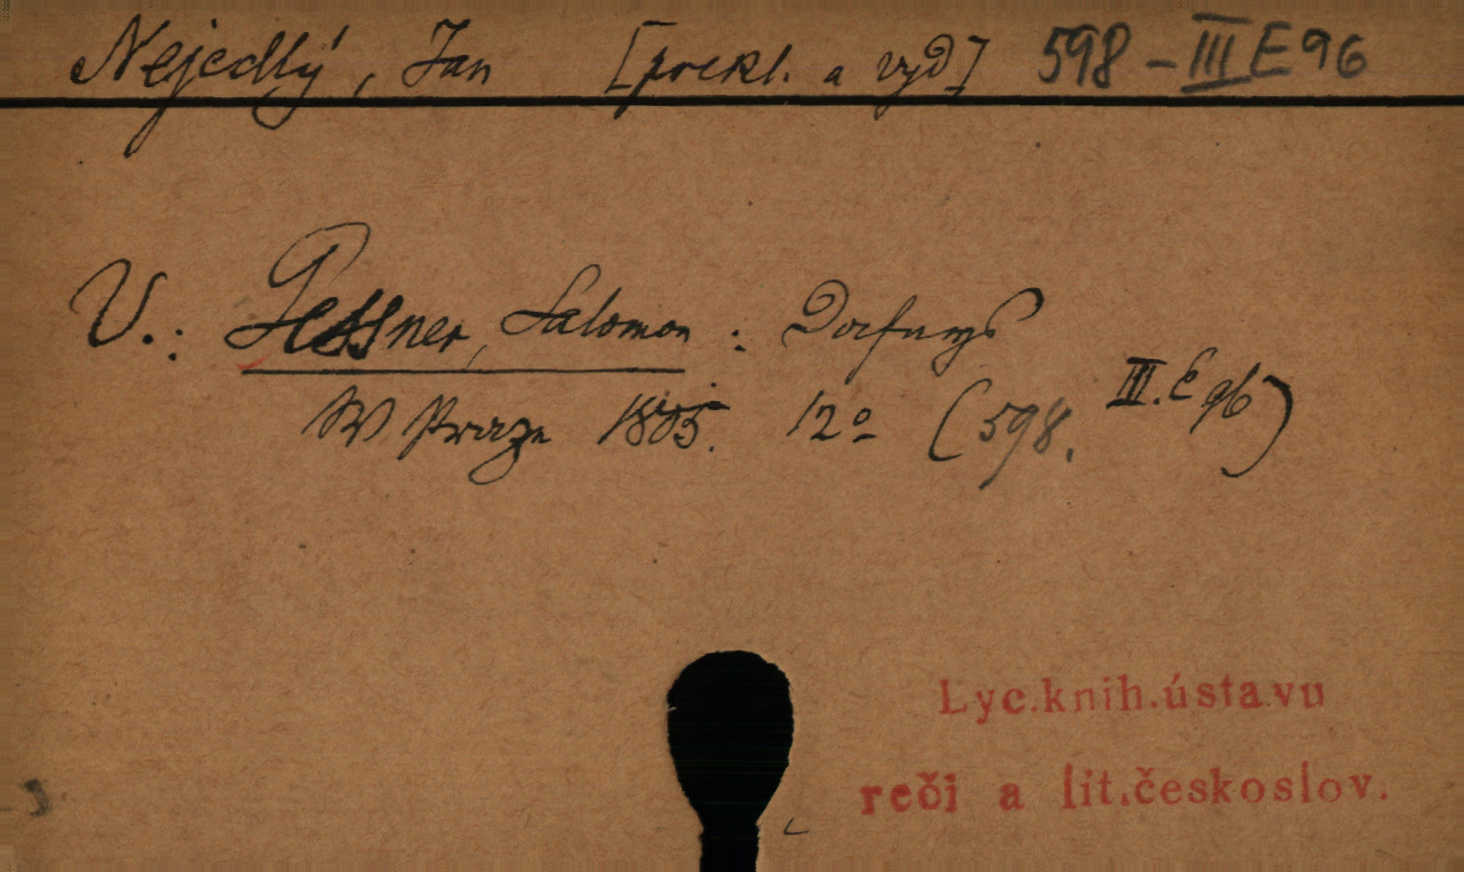 Nejedlý, Jan [prekl. a vyd] 598-III E 96
V.: Gessner, Salomon: Dafnys
W Praze 1805. 12º (598. III. E 96)
Lyc.knih.ústavu
reči a lit.českoslov.